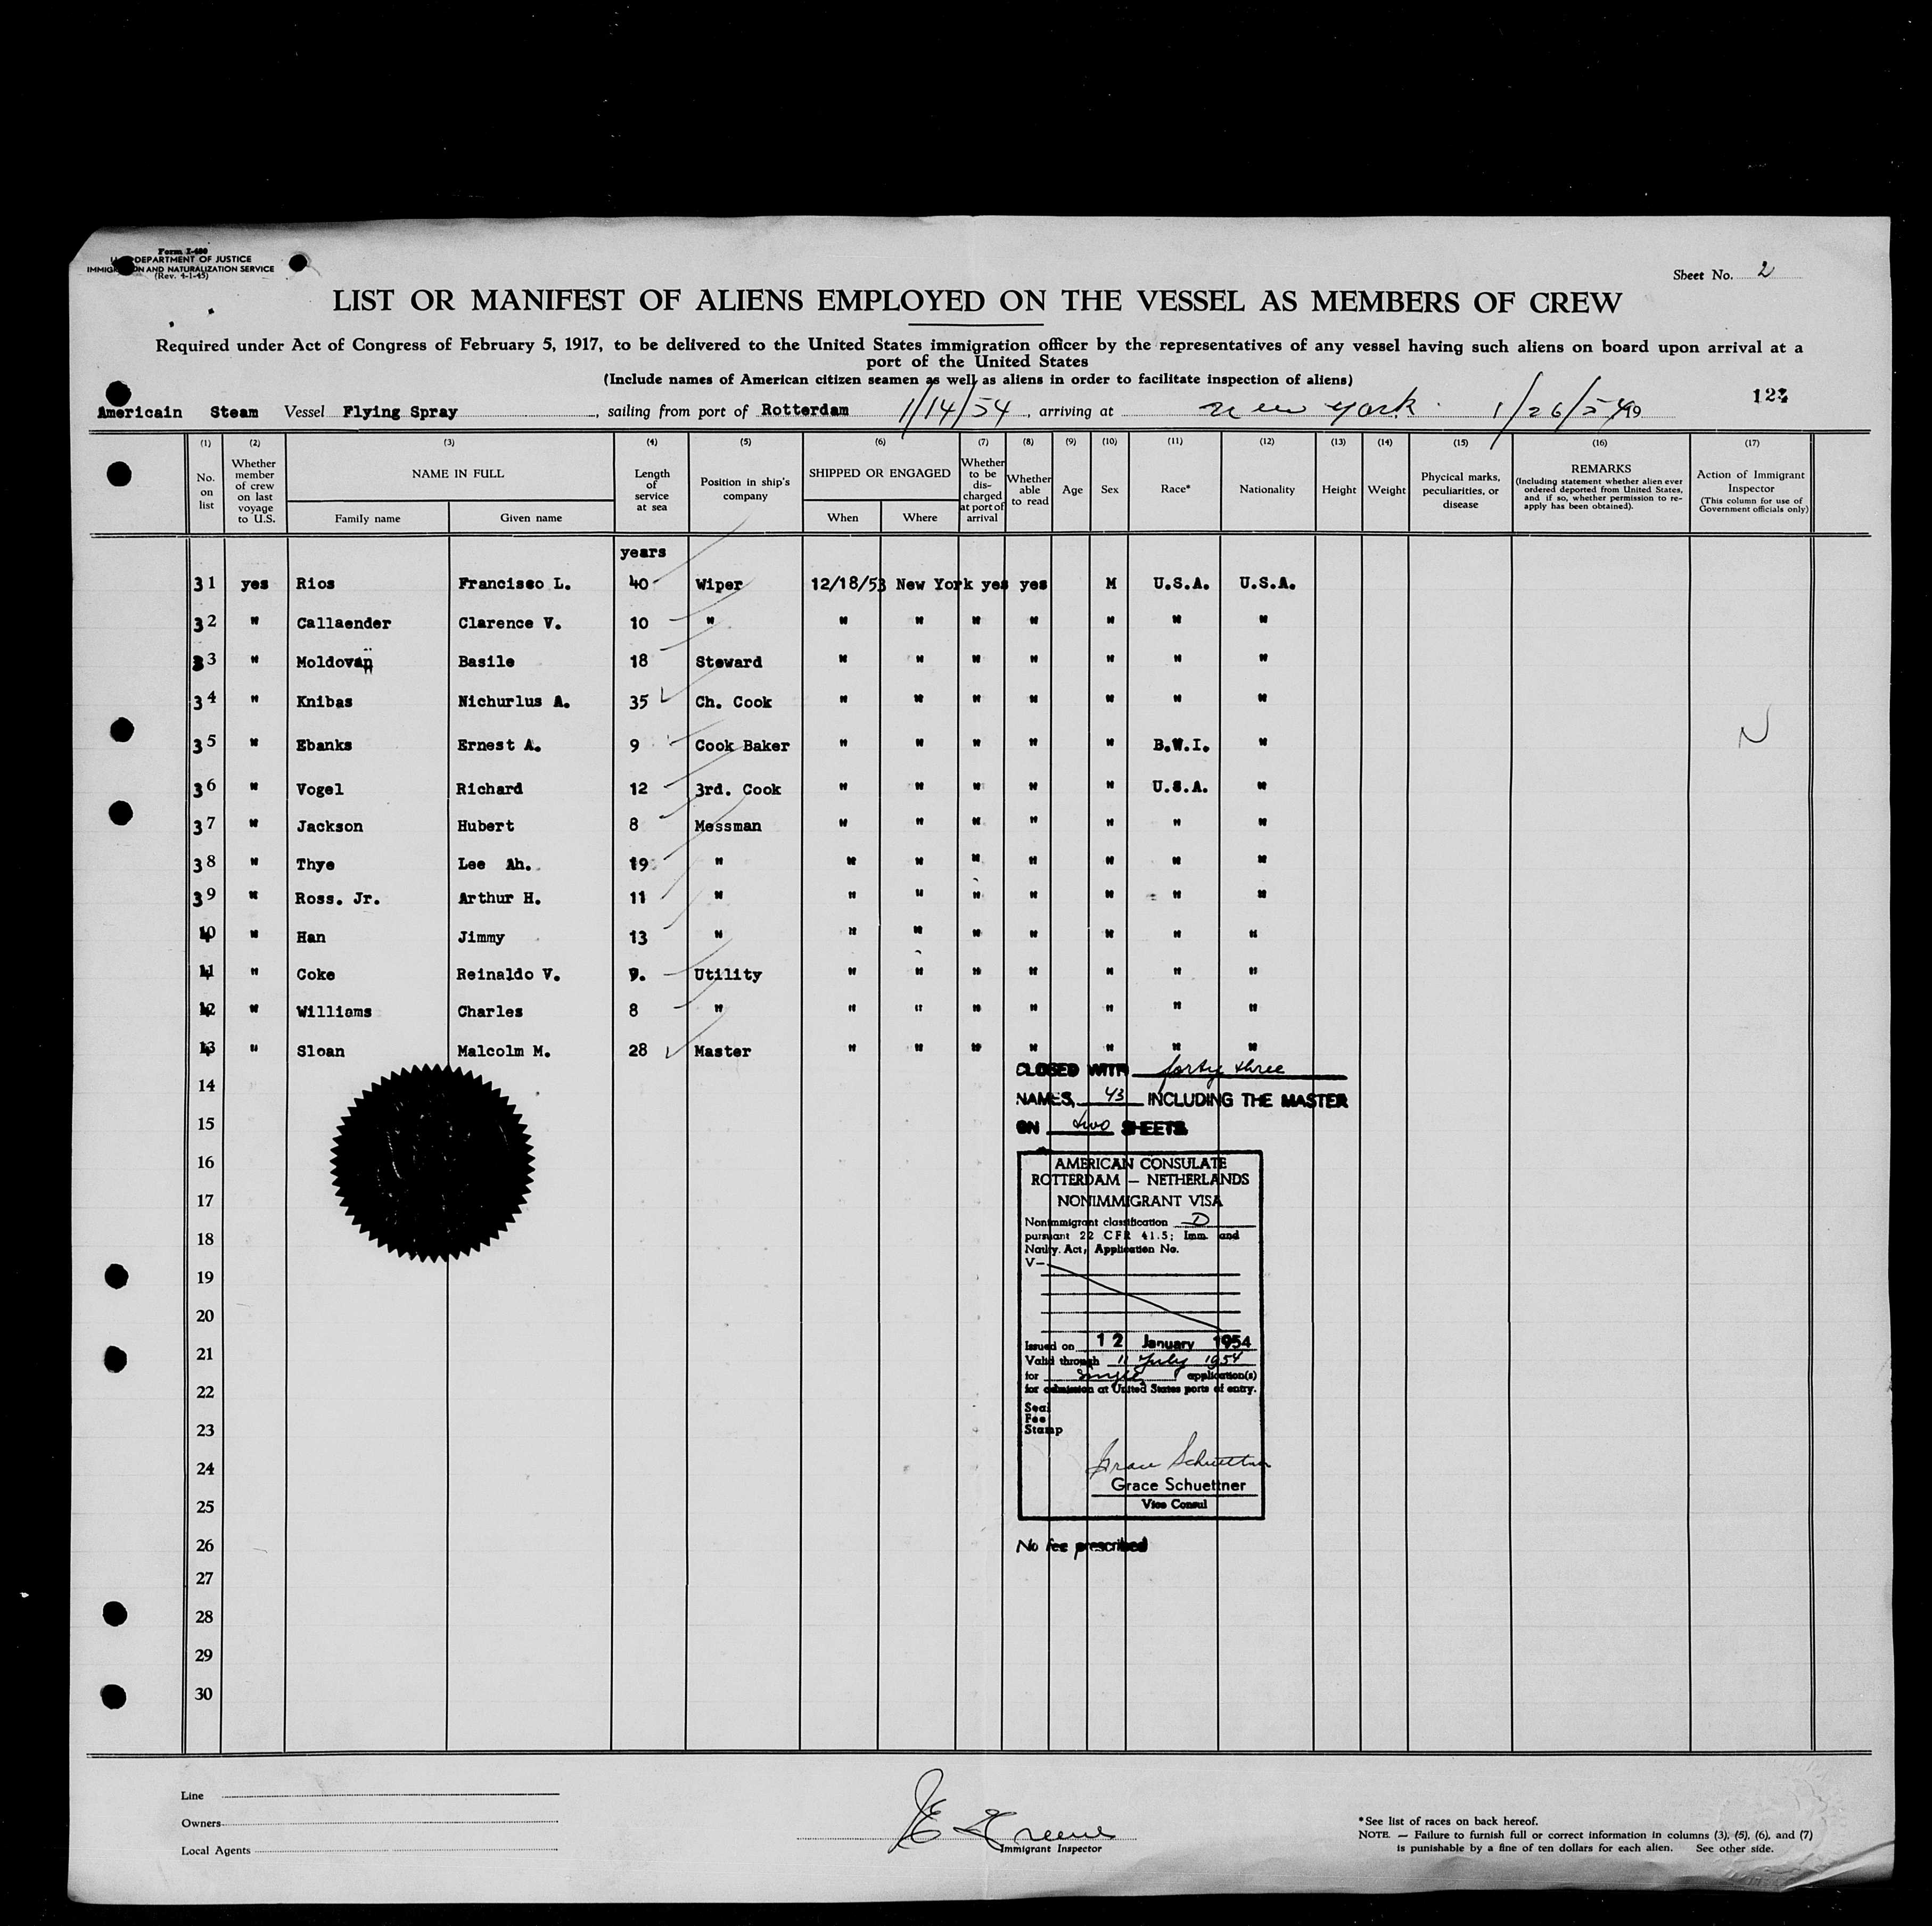 Form I-480
DEPARTMENT OF JUSTICE
IMMIGRATION AND NATURALIZATION SERVICE
(Rev. 4-1-45)
Sheet No. 2
LIST OR MANIFEST OF ALIENS EMPLOYED ON THE VESSEL AS MEMBERS OF CREW
Required under Act of Congress of February 5, 1917, to be delivered to the United States immigration officer by the representatives of any vessel having such aliens on board upon arrival at a
port of the United States
(Include names of American citizen seamen as well as aliens in order to facilitate inspection of aliens)
Americain Steam Vessel Flying Spray, sailing from port of Rotterdam 1/14/54, arriving at New York 1/26/54
(1) (2) (3) (4) (5) (6) (7) (8) (9) (10) (11) (12) (13) (14) (15) (16) (17)
No. on list
Whether member of crew on last voyage to U.S.
NAME IN FULL
Family name
Given name
Length of service at sea
Position in ship's company
SHIPPED OR ENGAGED
When
Where
Whether to be discharged at port of arrival
Whether able to read
Age
Sex
Race*
Nationality
Height
Weight
Physical marks, peculiarities, or disease
REMARKS
(Including statement whether alien ever ordered deported from United States, and if so, whether permission to re-apply has been obtained).
Action of Immigrant Inspector
(This column for use of Government officials only)
years
31 yes Rios Francisco L. 40 Wiper 12/18/53 New York yes yes M U.S.A. U.S.A.
32 " Callaender Clarence V. 10 " " " " " " " "
33 " Moldovan Basile 18 Steward " " " " " " "
34 " Knibas Nichurlus A. 35 Ch. Cook " " " " " " "
35 " Ebanks Ernest A. 9 Cook Baker " " " " " B.W.I. "
36 " Vogel Richard 12 3rd. Cook " " " " " U.S.A. "
37 " Jackson Hubert 8 Messman " " " " " " "
38 " Thye Lee Ah. 19 " " " " " " " "
39 " Ross. Jr. Arthur H. 11 " " " " " " " "
10 " Han Jimmy 13 " " " " " " " "
11 " Coke Reinaldo V. 9. Utility " " " " " " "
12 " Williams Charles 8 " " " " " " " "
13 " Sloan Malcolm M. 28 Master " " " " " " "
N
CLOSED WITH forty three
NAMES, 43 INCLUDING THE MASTER
ON two SHEETS
14
15
16
17
18
19
20
21
22
23
24
25
26
27
28
29
30
AMERICAN CONSULATE
ROTTERDAM — NETHERLANDS
NONIMMIGRANT VISA
Nonimmigrant classification D
pursuant 22 CFR 41.5; Imm. and
Natly. Act, Application No.
V—
Issued on 12 January 1954
Valid through 11 July 1954
for Single application(s)
for admission at United States ports of entry.
Seal
Fee
Stamp
Grace Schuettner
Grace Schuettner
Vice Consul
No fee prescribed
Line
Owners
Local Agents
Immigrant Inspector
*See list of races on back hereof.
NOTE. — Failure to furnish full or correct information in columns (3), (5), (6), and (7)
is punishable by a fine of ten dollars for each alien. See other side.